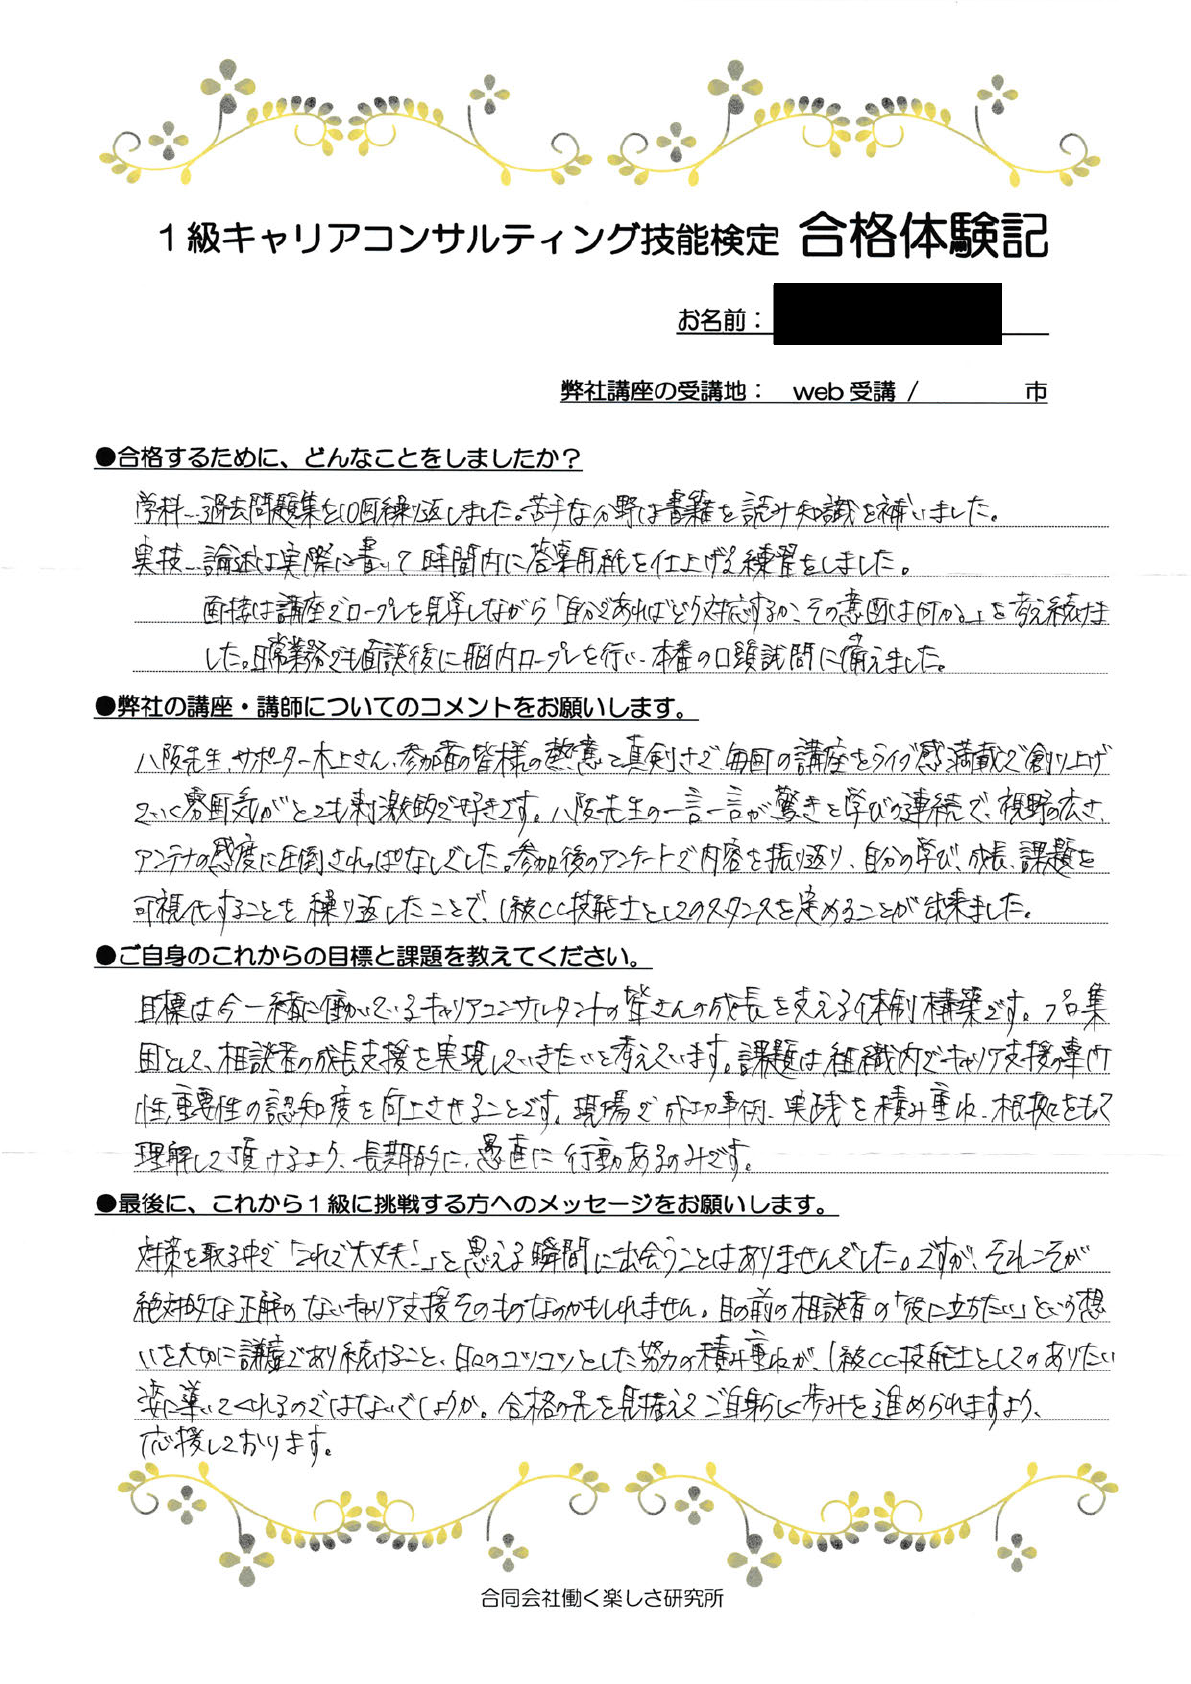 1級キャリアコンサルティング技能検定 合格体験記
お名前：
弊社講座の受講地： web受講 / 市
●合格するために、どんなことをしましたか？
学科…過去問題集を10回繰り返しました。苦手な分野は書籍を読み知識を補いました。
実技…論述は実際に書いて時間内に答案用紙を仕上げる練習をしました。
面接は講座でロープレを見学しながら「自分であればどう対応するか、その意図は何か。」を考え続けま
した。日常業務でも面談後に脳内ロープレを行い、本番の口頭試問に備えました。
●弊社の講座・講師についてのコメントをお願いします。
八阪先生、サポーター木上さん、参加者の皆様の熱意と真剣さで、毎回の講座をライブ感満載で創り上げ
ていく雰囲気がとても刺激的で好きです。八阪先生の一言一言が驚きと学びの連続で、視野の広さ、
アンテナの感度に圧倒されっぱなしでした。参加後のアンケートで内容を振り返り、自分の学び、成長、課題を
可視化することを繰り返したことで、1級CC技能士としてのスタンスを定めることが出来ました。
●ご自身のこれからの目標と課題を教えてください。
目標は今一緒に働いているキャリアコンサルタントの皆さんの成長を支える体制構築です。プロ集
団として、相談者の成長支援を実現していきたいと考えています。課題は組織内でキャリア支援の専門
性、重要性の認知度を向上させることです。現場で成功事例、実践を積み重ね、根拠をもって
理解して頂けるよう、長期的に、愚直に行動あるのみです。
●最後に、これから1級に挑戦する方へのメッセージをお願いします。
対策を取る中で「これで大丈夫！」と思える瞬間に出会うことはありませんでした。ですが、それこそが
絶対的な正解のないキャリア支援そのものなのかもしれません。目の前の相談者の「役に立ちたい」という想
いを大切に謙虚であり続けること、日々のコツコツとした努力の積み重ねが、1級CC技能士としてのありたい
姿に導いてくれるのではないでしょうか。合格の先を見据えてご自身らしく歩みを進められますよう、
応援しております。
合同会社働く楽しさ研究所